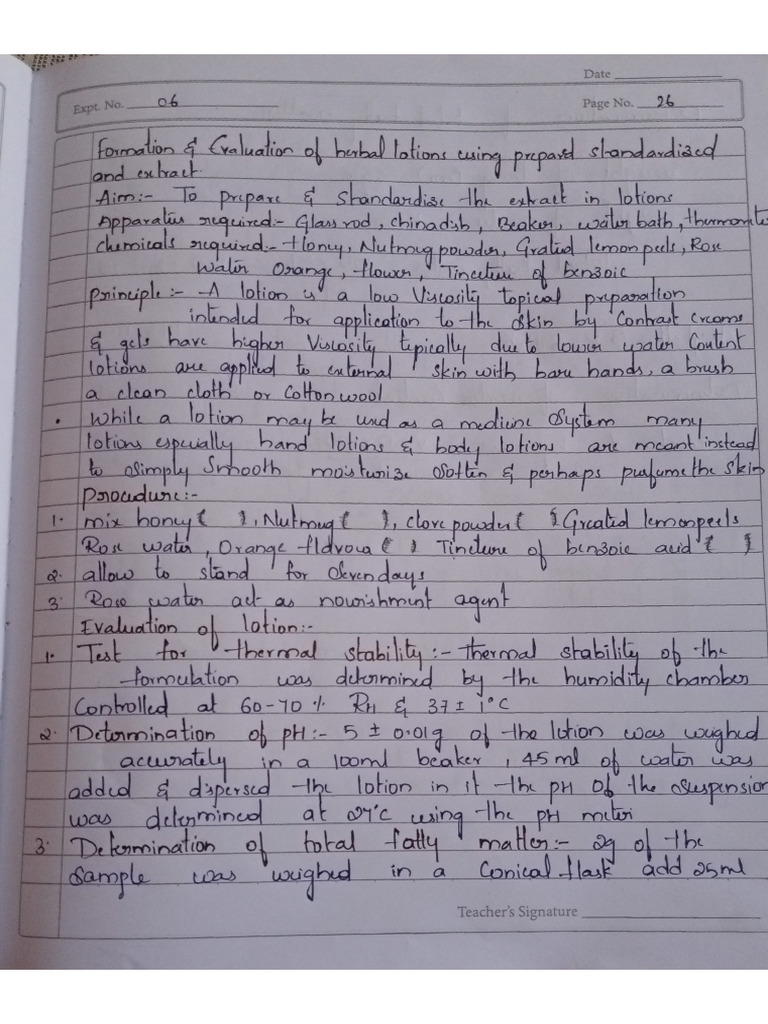 Date
Expt. No. 06
Page No. 26
Formation & Evaluation of herbal lotions using prepared standardized
and extract
Aim:- To prepare & standardise the extract in lotions
Apparatus required:- Glass rod, china dish, Beaker, water bath, thermomete
chemicals required:- Honey, Nutmug powder, Grated lemon peels, Rose
Water Orange, flower, Tincture of benzoic
principle:- A lotion is a low Viscosity topical preparation
intended for application to the skin by Contrast creams
& gels have higher Viscosity typically due to lower water Content
lotions are applied to external skin with bare hands, a brush
a clean cloth or Cotton wool
• While a lotion may be used as a medicine system many
lotions especially hand lotions & body lotions are meant instead
to simply Smooth moisturize soften & perhaps perfume the skin
procedure:-
1. mix honey ( ), Nutmug ( ), clove powder ( ) Greated lemon peels
Rose water, Orange ( ) Tincture of benzoic acid ( )
2. allow to stand for Seven days
3. Rose water act as nourishment agent
Evaluation of lotion:-
1. Test for thermal stability:- thermal stability of the
formulation was determined by the humidity chamber
Controlled at 60-70 % RH & 37 ± 1°C
2. Determination of pH:- 5 ± 0.01g of the lotion was weighed
accurately in a 100ml beaker, 45 ml of water was
added & dispersed the lotion in it the pH of the suspension
was determined at 27°C using the pH meter
3. Determination of total fatty matter:- 2g of the
Sample was weighed in a Conical flask add 25ml
Teacher's Signature